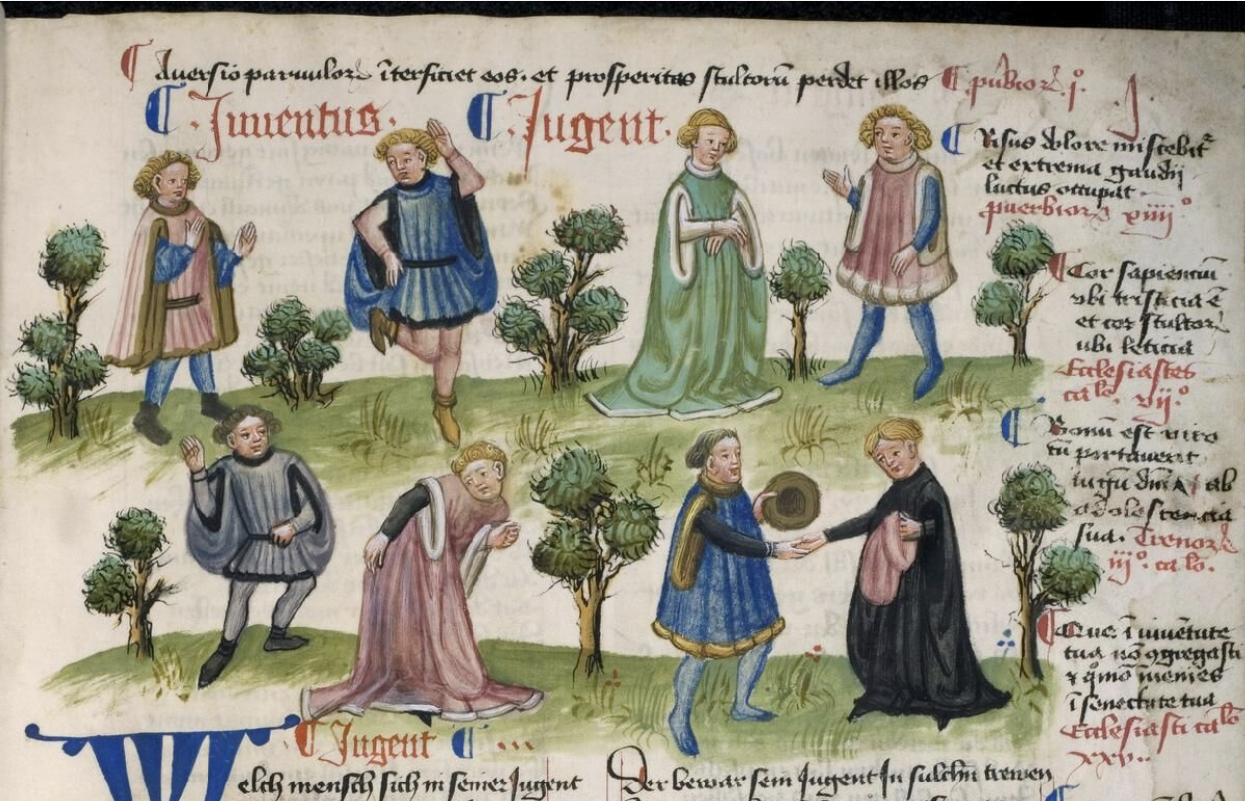 Aversio parvulorꝝ īterficiet eos. et prosperitas stultorū perdet illos
ꝓv̄bioꝝ. jº.
Juuentus.
Jugent.
Risus dolore miscebit᷑
et extrema gaudij
luctus occupat.
ꝓuerbiorꝝ xiiijº
Cor sapienciū
vbi tristicia ē
et cor stultorꝝ
ubi leticia
Ecclesiastes
ca̅lo. vijº.
Bonū est viro
cū portauerit
iugū dn̄i ab
adolescencia
sua. Trenorꝝ
iijº. ca̅lo.
Que ī iuuētute
tua nō ꝯgregasti
ī senectute tua
Ecclesiasti ca̅lo
xxv..
Jugent
Welch mensch sich in seiner Jugent
Der bewar sein Jugent In sulchn trewen